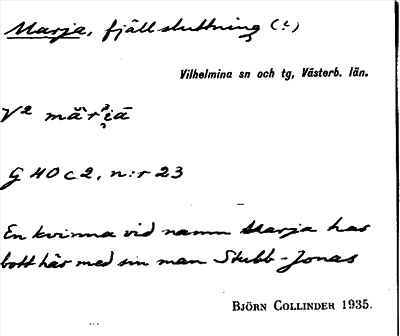 Marja, fjällsluttning (?)
Vilhelmina sn och tg, Västerb. län.
V2
G 40 c 2, n:r 23
En kvinna vid namn Marja har
bott här med sin man Stubb-Jonas
BJÖRN COLLINDER 1935.